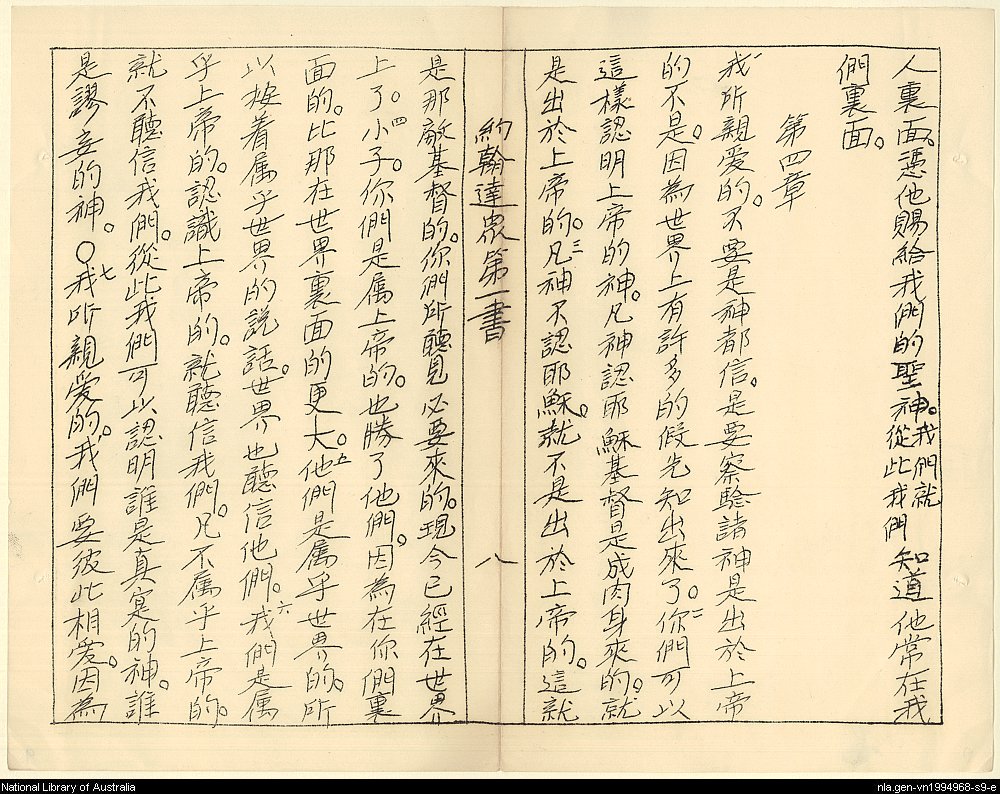 人裏面。憑他賜給我們的聖神。我們就從此我們知道他常在我
們裏面。
第四章
一我所親愛的。不要是神都信。是要察騐諸神是出於上帝
的不是。因為世界上有許多的假先知出來了。二你們可以
這樣認明上帝的神。凡神認耶穌基督是成肉身來的。就
是出於上帝的。三凡神不認耶穌。就不是出於上帝的。這就
約翰達眾第一書
八
是那敵基督的。你們所聽見必要來的。現今已經在世界
上了。四小子。你們是属上帝的。也勝了他們。因為在你們裏
面的。比那在世界裏面的更大。五他們是属乎世界的。所
以按着属乎世界的説話。世界也聽信他們。六我們是属
乎上帝的。認識上帝的。就聽信我們。凡不属乎上帝的。
就不聽信我們。從此我們可以認明誰是真寔的神。誰
是謬妄的神。〇七我所親愛的。我們要彼此相愛。因為
National Library of Australia
nla.gen-vn1994968-s9-e